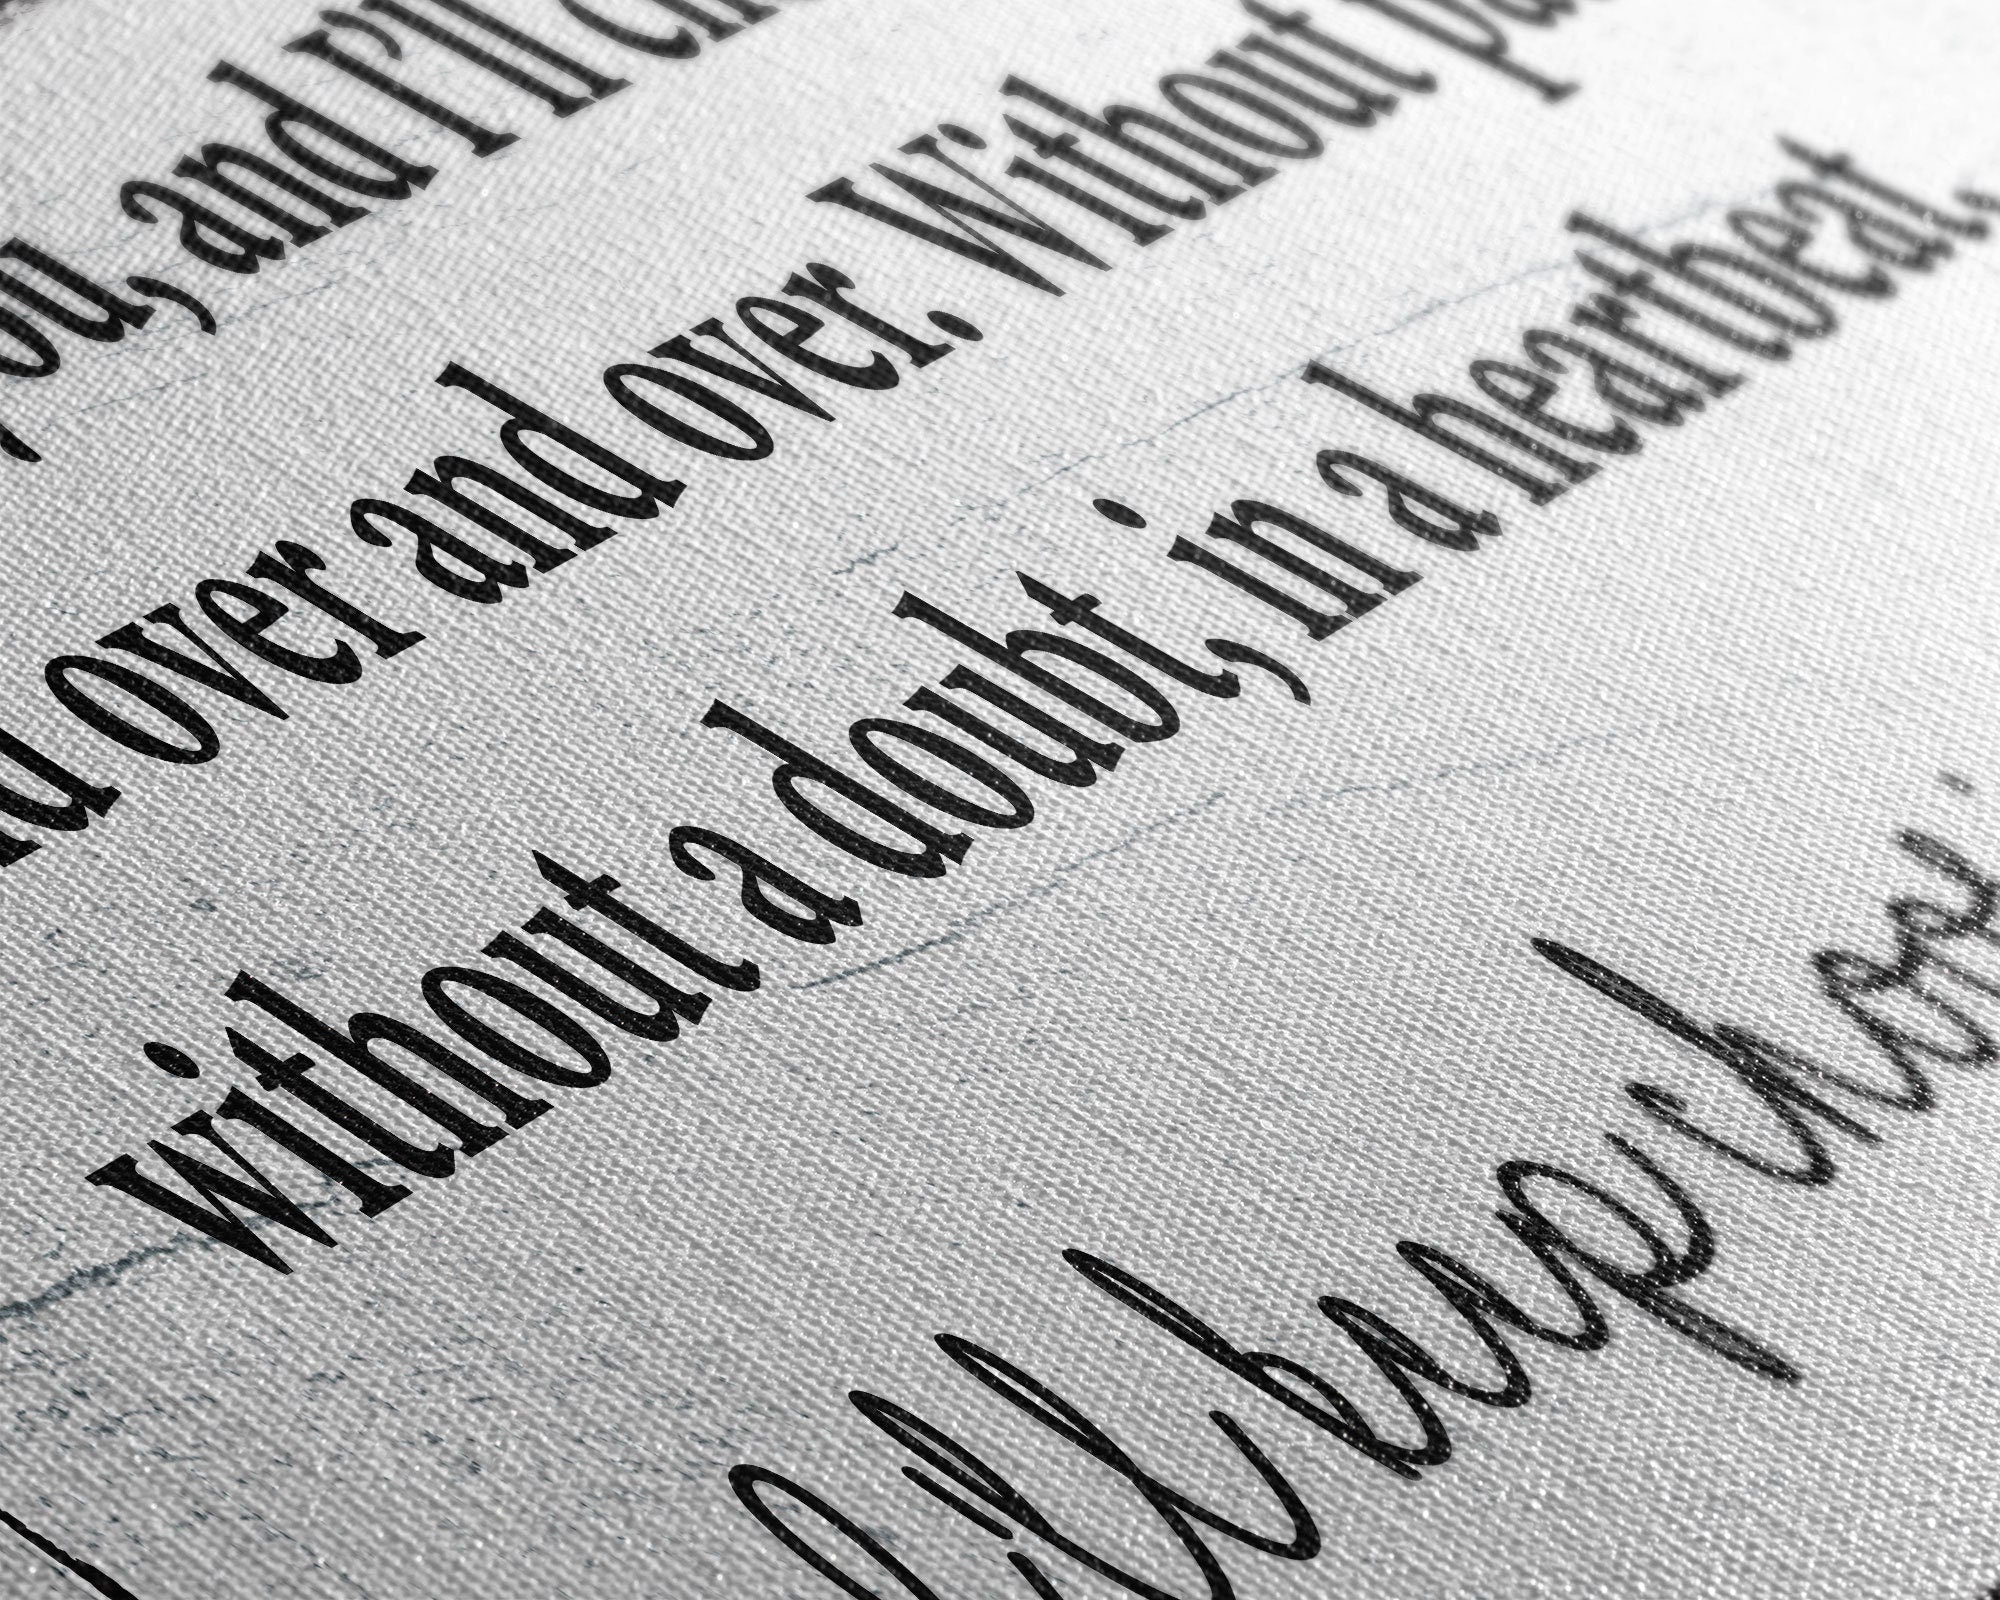 and I'll
over and over. Without
without a doubt, in a heartbeat,
I'll keep choosi